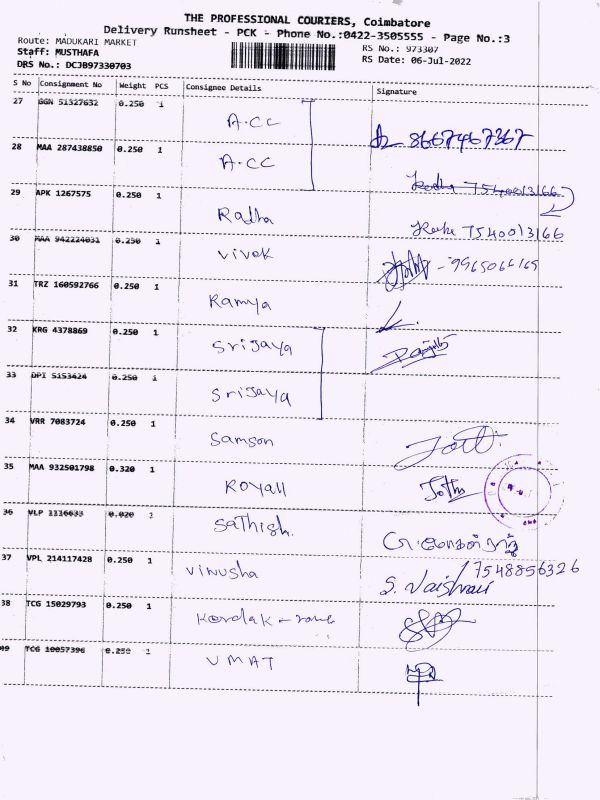 THE PROFESSIONAL COURIERS, Coimbatore
Delivery Runsheet - PCK - Phone No.:0422-3505555 - Page No.:3
Route: MADUKARI MARKET
RS No.: 973307
Staff: MUSTHAFA
RS Date: 06-Jul-2022
DRS No.: DCJB97330703
S No Consignment No Weight PCS Consignee Details Signature
27 GGN 51327632 0.250 1 A.CC 8667467367
28 MAA 287438850 0.250 1 A.CC 7540013166
29 APK 1267575 0.250 1 Radha 7540013166
30 MAA 942224031 0.250 1 Vivek
31 TRZ 160592766 0.250 1 Ramya
32 KRG 4378869 0.250 1 Srijaya
33 DPI 5153424 0.250 1 Srijaya
34 VRR 7083724 0.250 1 Samson
35 MAA 932501798 0.320 1 Royall
36 VLP 1116633 0.020 1 Sathish.
37 VPL 214117428 0.250 1 Vinusha S. Vaishnavi 7548856326
38 TCG 15029793 0.250 1
39 TCG 10057396 0.250 1 UMAT